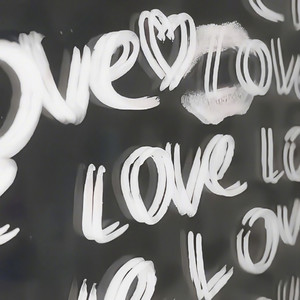 ove ♡ Love
Love Lo
e Lov